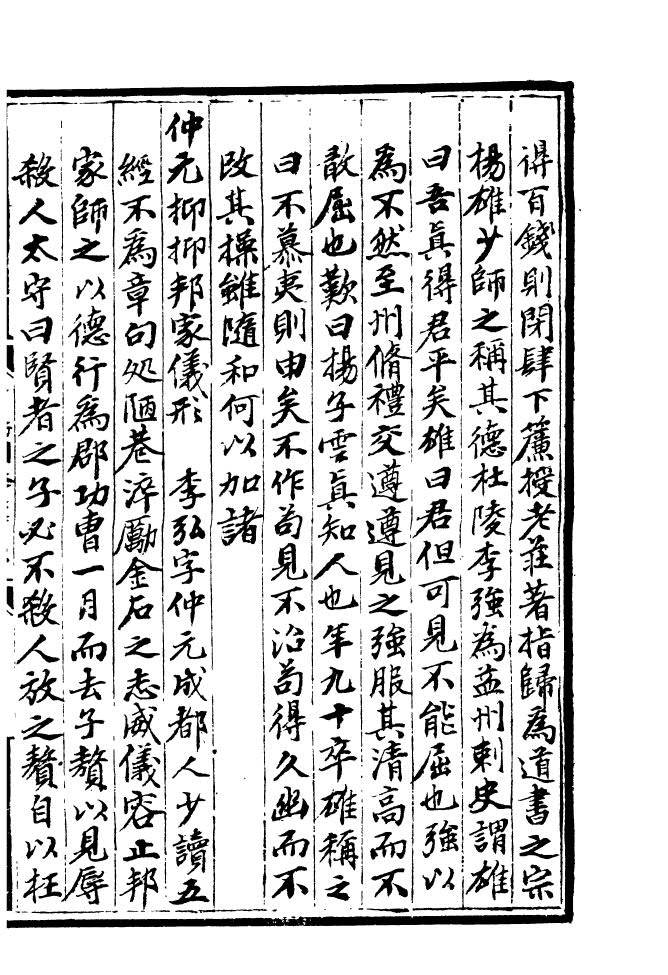 得百錢則閉肆下簾授老莊著指歸為道書之宗
楊雄少師之稱其德杜陵李強為益州刺史謂雄
曰吾真得君平矣雄曰君但可見不能屈也強以
為不然至州脩禮交遵遵見之強服其清高而不
敢屈也歎曰楊子雲真知人也年九十卒雄稱之
曰不慕夷則由矣不作苟見不治苟得久幽而不
改其操雖隨和何以加諸
仲元抑抑邦家儀形　李弘字仲元成都人少讀五
經不為章句処陋巷淬勵金石之志威儀容止邦
家師之以德行為郡功曹一月而去子贅以見辱
殺人太守曰賢者之子必不殺人放之贅自以枉